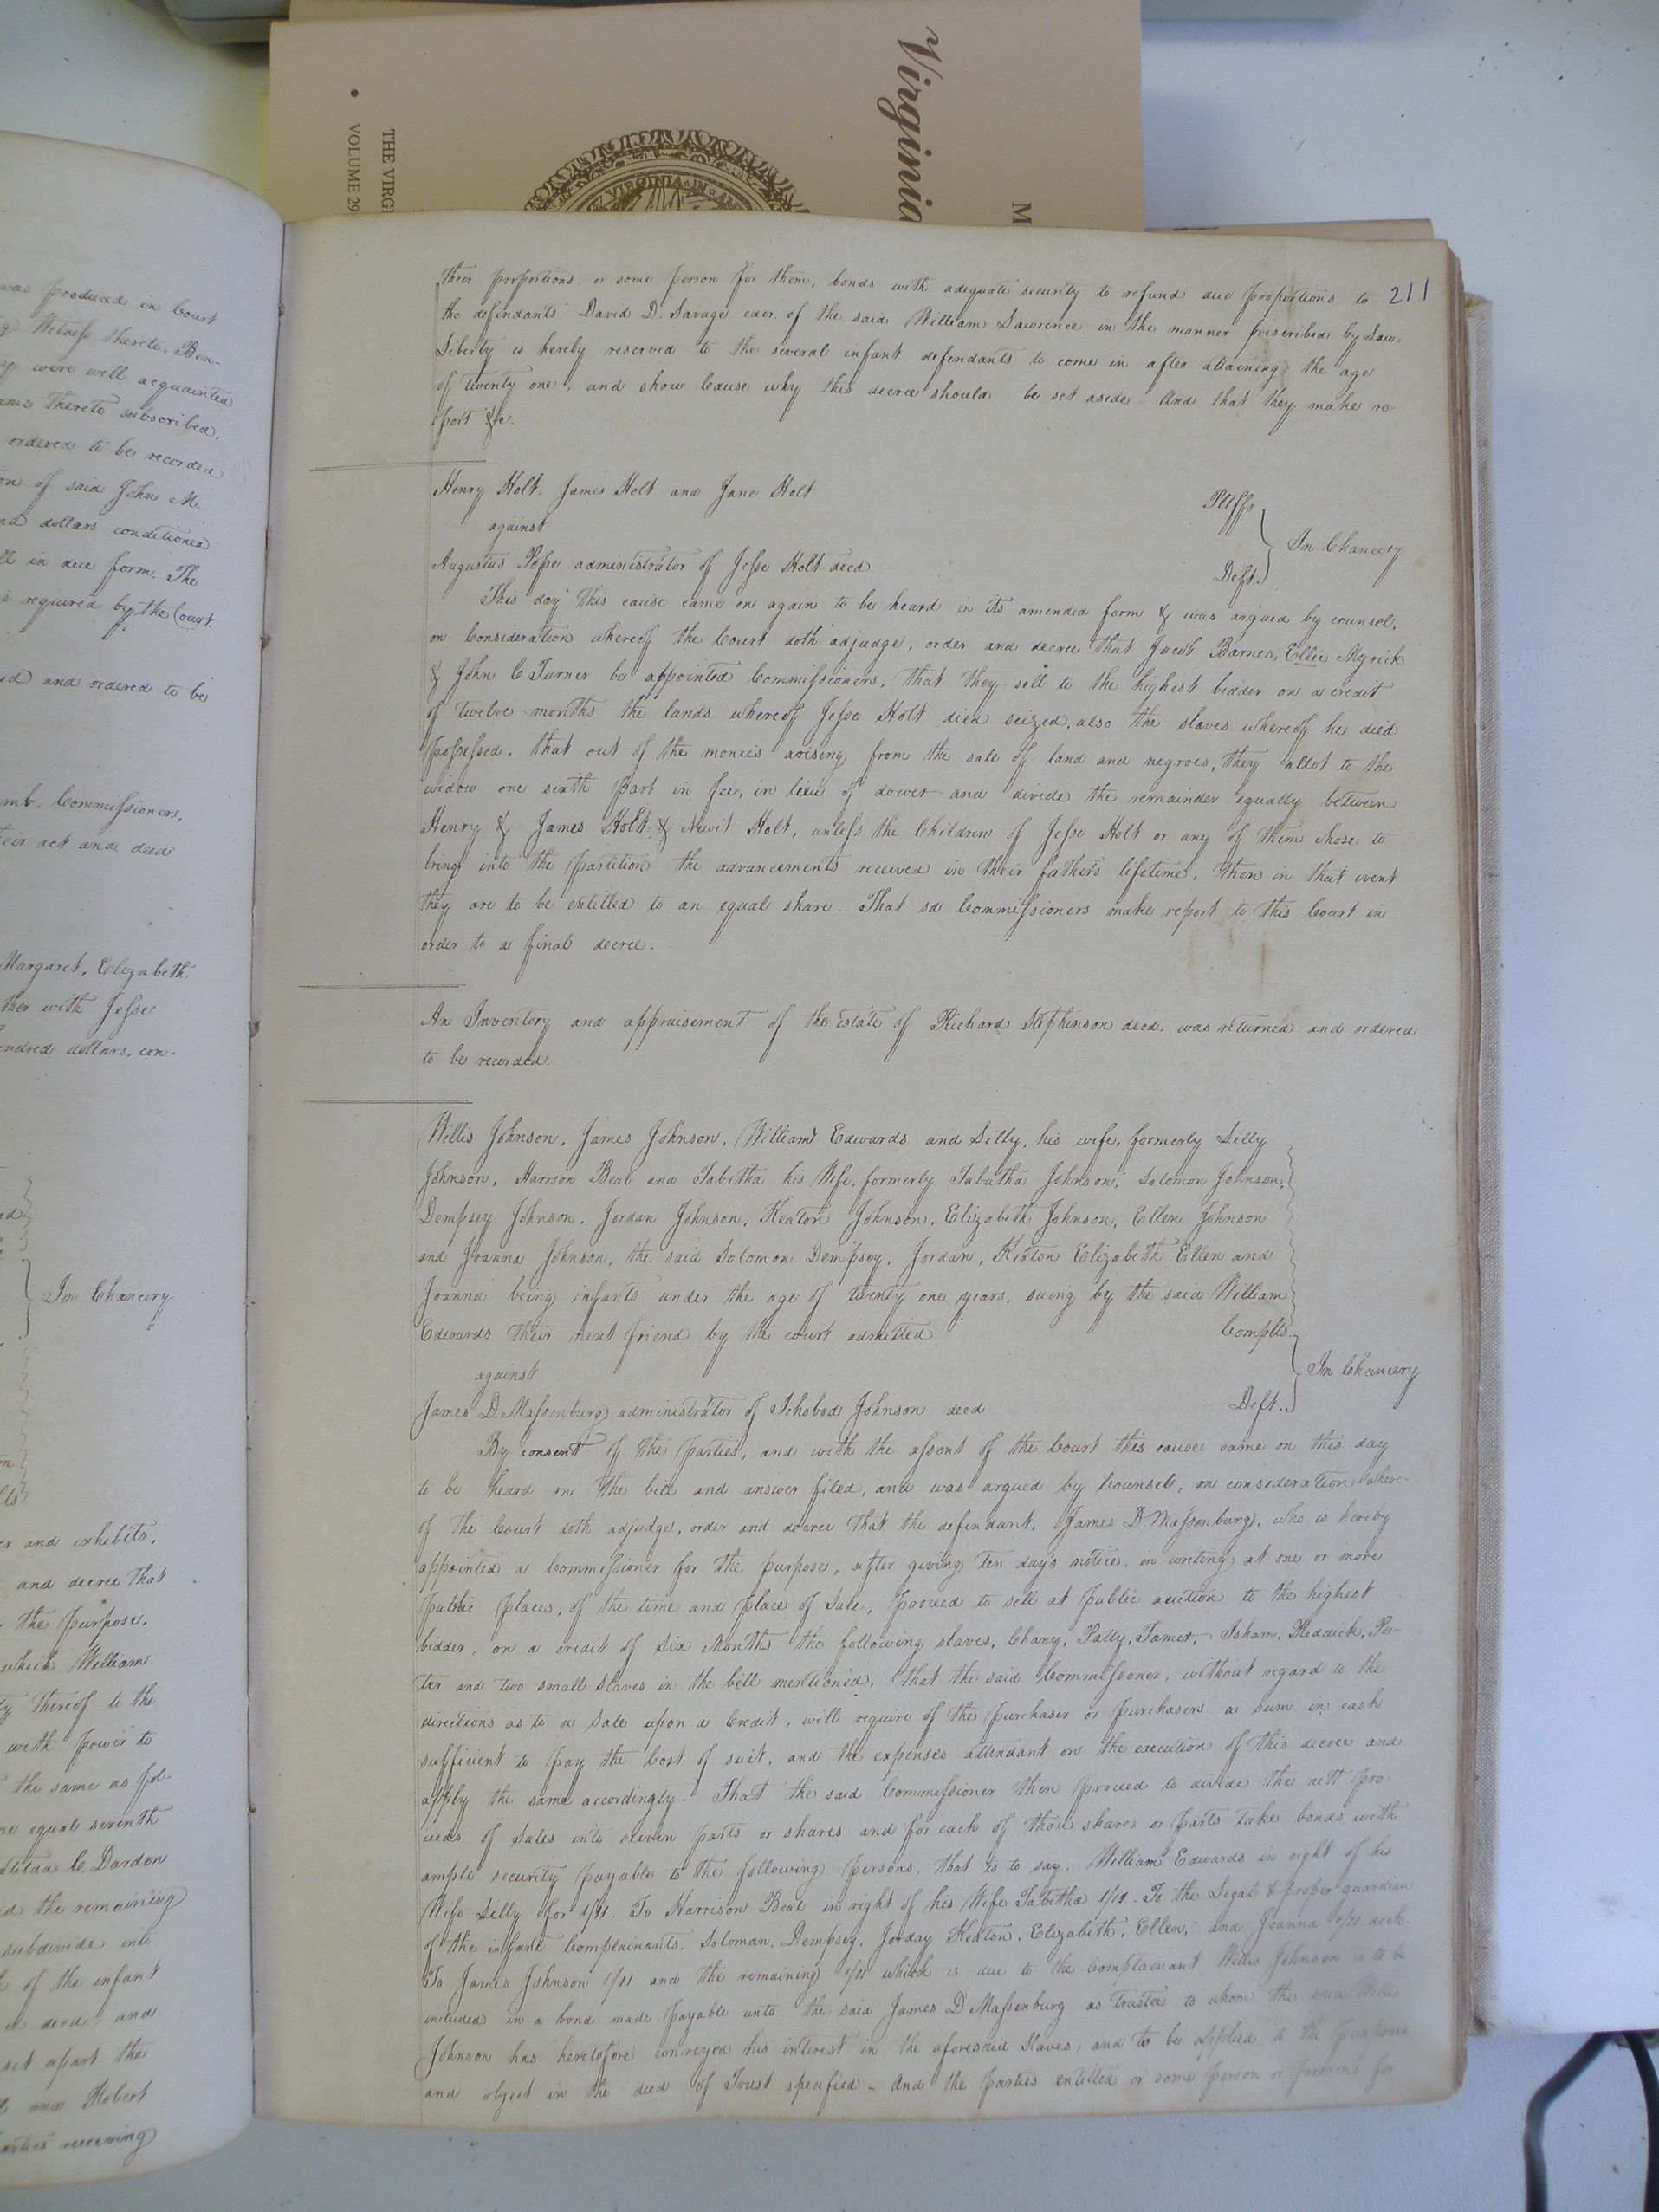 Virginia
M
THE VIRGI
VOLUME 29
VIRGINIA IN
was produced in Court
Witness thereto. Ben-
were well acquainted
thereto subscribed.
ordered to be recorded
of said John M.
dollars conditioned
in due form. The
required by the Court.
and ordered to be
Commissioners,
act and deed
Margaret, Elizabeth
with Jesse
dollars, con-
In Chancery
and exhibits,
and decree that
the purpose,
which William
thereof to the
with power to
the same as fol-
equal seventh
C. Darden
the remaining
subdivide into
of the infant
deed and
set apart the
and Robert
receiving
211
their proportions or some person for them, bonds with adequate security to refund due proportions to
the defendants David D. Savage exor. of the said William Lawrence in the manner prescribed by Law.
Liberty is hereby reserved to the several infant defendants to come in after attaining the age
of twenty one, and show Cause why this decree should be set aside - And that they make re-
port &c.
Henry Holt, James Holt and Jane Holt Pltffs
against
In Chancery
Augustus Pope administrator of Jesse Holt decd Deft.
This day this cause came on again to be heard in its amended form & was argued by counsel,
on Consideration whereof the Court doth adjudge, order and decree that Jacob Barnes, Ellie Myrick
& John C Turner be appointed Commissioners, that they sell to the highest bidder on a credit
of twelve months the lands whereof Jesse Holt died seized, also the slaves whereof he died
possessed, that out of the monies arising from the sale of land and negroes, they allot to the
widow one sixth part in fee, in lieu of dower and divide the remainder equally between
Henry & James Holt & Newit Holt, unless the Children of Jesse Holt or any of them chose to
bring into the partition the advancements received in their fathers lifetime, then in that event
they are to be entitled to an equal share. That sd Commissioners make report to this Court in
order to a final decree.
An Inventory and appraisement of the estate of Richard Stephenson decd. was returned and ordered
to be recorded.
Willis Johnson, James Johnson, William Edwards and Silly, his wife, formerly Silly
Johnson, Harrison Beal and Tabitha his Wife, formerly Tabitha Johnson, Solomon Johnson,
Dempsey Johnson, Jordan Johnson, Keaton Johnson, Elizabeth Johnson, Ellen Johnson
and Joanna Johnson, the said Solomon Dempsey, Jordan, Keaton Elizabeth Ellen and
Joanna being infants under the age of twenty one years, suing by the said William
Edwards their next friend by the court admitted Complts.
against
In Chancery
James D. Massenburg administrator of Ichabod Johnson decd Deft.
By consent of the parties, and with the assent of the Court this cause came on this day
to be heard on the bill and answer filed, and was argued by Counsel, on consideration where-
of the Court doth adjudge, order and decree that the defendant, James D. Massenburg, who is hereby
appointed a Commissioner for the purpose, after giving ten day's notice, in writing at one or more
public places, of the time and place of Sale, proceed to sell at public auction to the highest
bidder, on a credit of six Months the following slaves, Chany, Patty, Tamer, Isham, Reddick, Pe-
ter and two small slaves in the bill mentioned, that the said Commissioner, without regard to the
directions as to a Sale upon a Credit, will require of the purchaser or purchasers a sum in cash
sufficient to pay the Cost of suit, and the expenses attendant on the execution of this decree and
apply the same accordingly - That the said Commissioner then proceed to divide the nett pro-
ceeds of Sales into eleven parts or shares and for each of those shares or parts take bonds with
ample security payable to the following persons, that is to say, William Edwards in right of his
Wife Silly for 1/11. To Harrison Beal in right of his Wife Tabitha 1/11. To the Legal & proper guardian
of the infant Complainants, Soloman, Dempsey, Jorday Keaton, Elizabeth, Ellen, and Joanna 1/11 each.
To James Johnson 1/11 and the remaining 1/11 which is due to the Complainant Willis Johnson is to be
included in a bond made payable unto the said James D Massenburg as Trustee to whom the said Willis
Johnson has heretofore conveyed his interest in the aforesaid slaves, and to be applied to the purposes
and object in the deed of Trust specified - And the parties entitled or some person or persons for